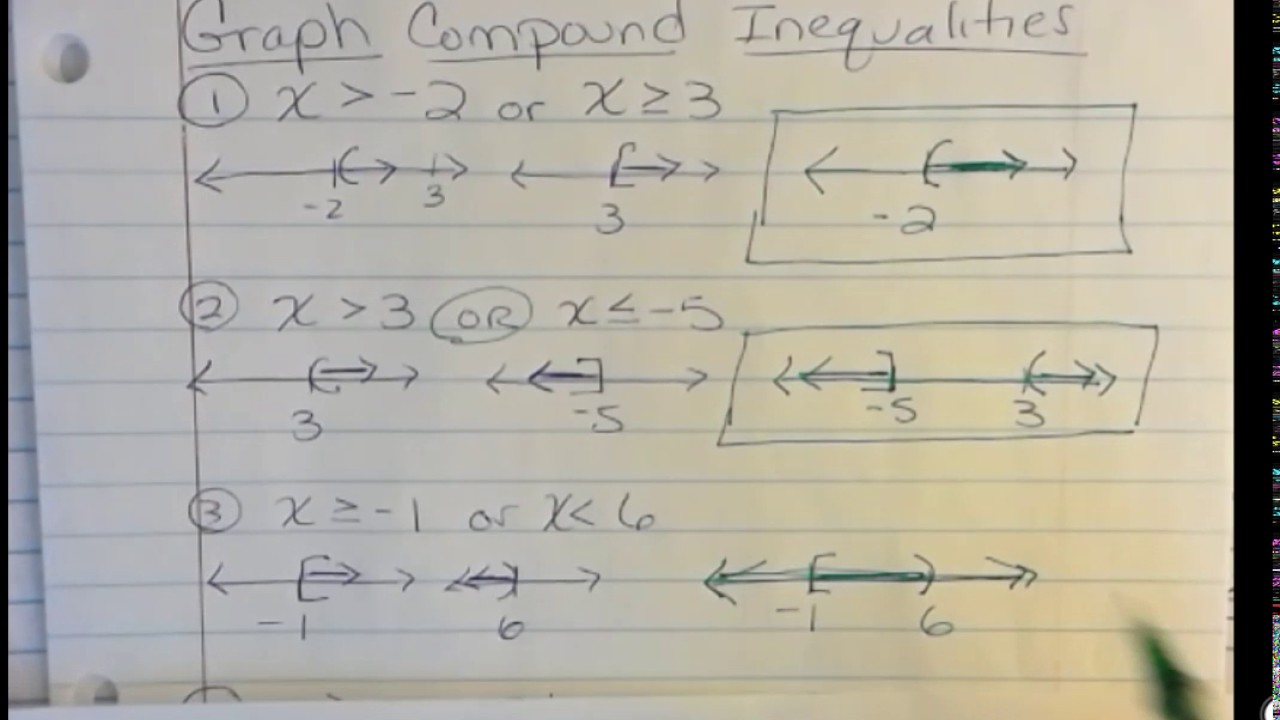 Graph Compound Inequalities
① x > -2 or x ≥ 3
-2 3 3 -2
② x > 3 OR x ≤ -5
3 -5 -5 3
③ x ≥ -1 or x < 6
-1 6 -1 6